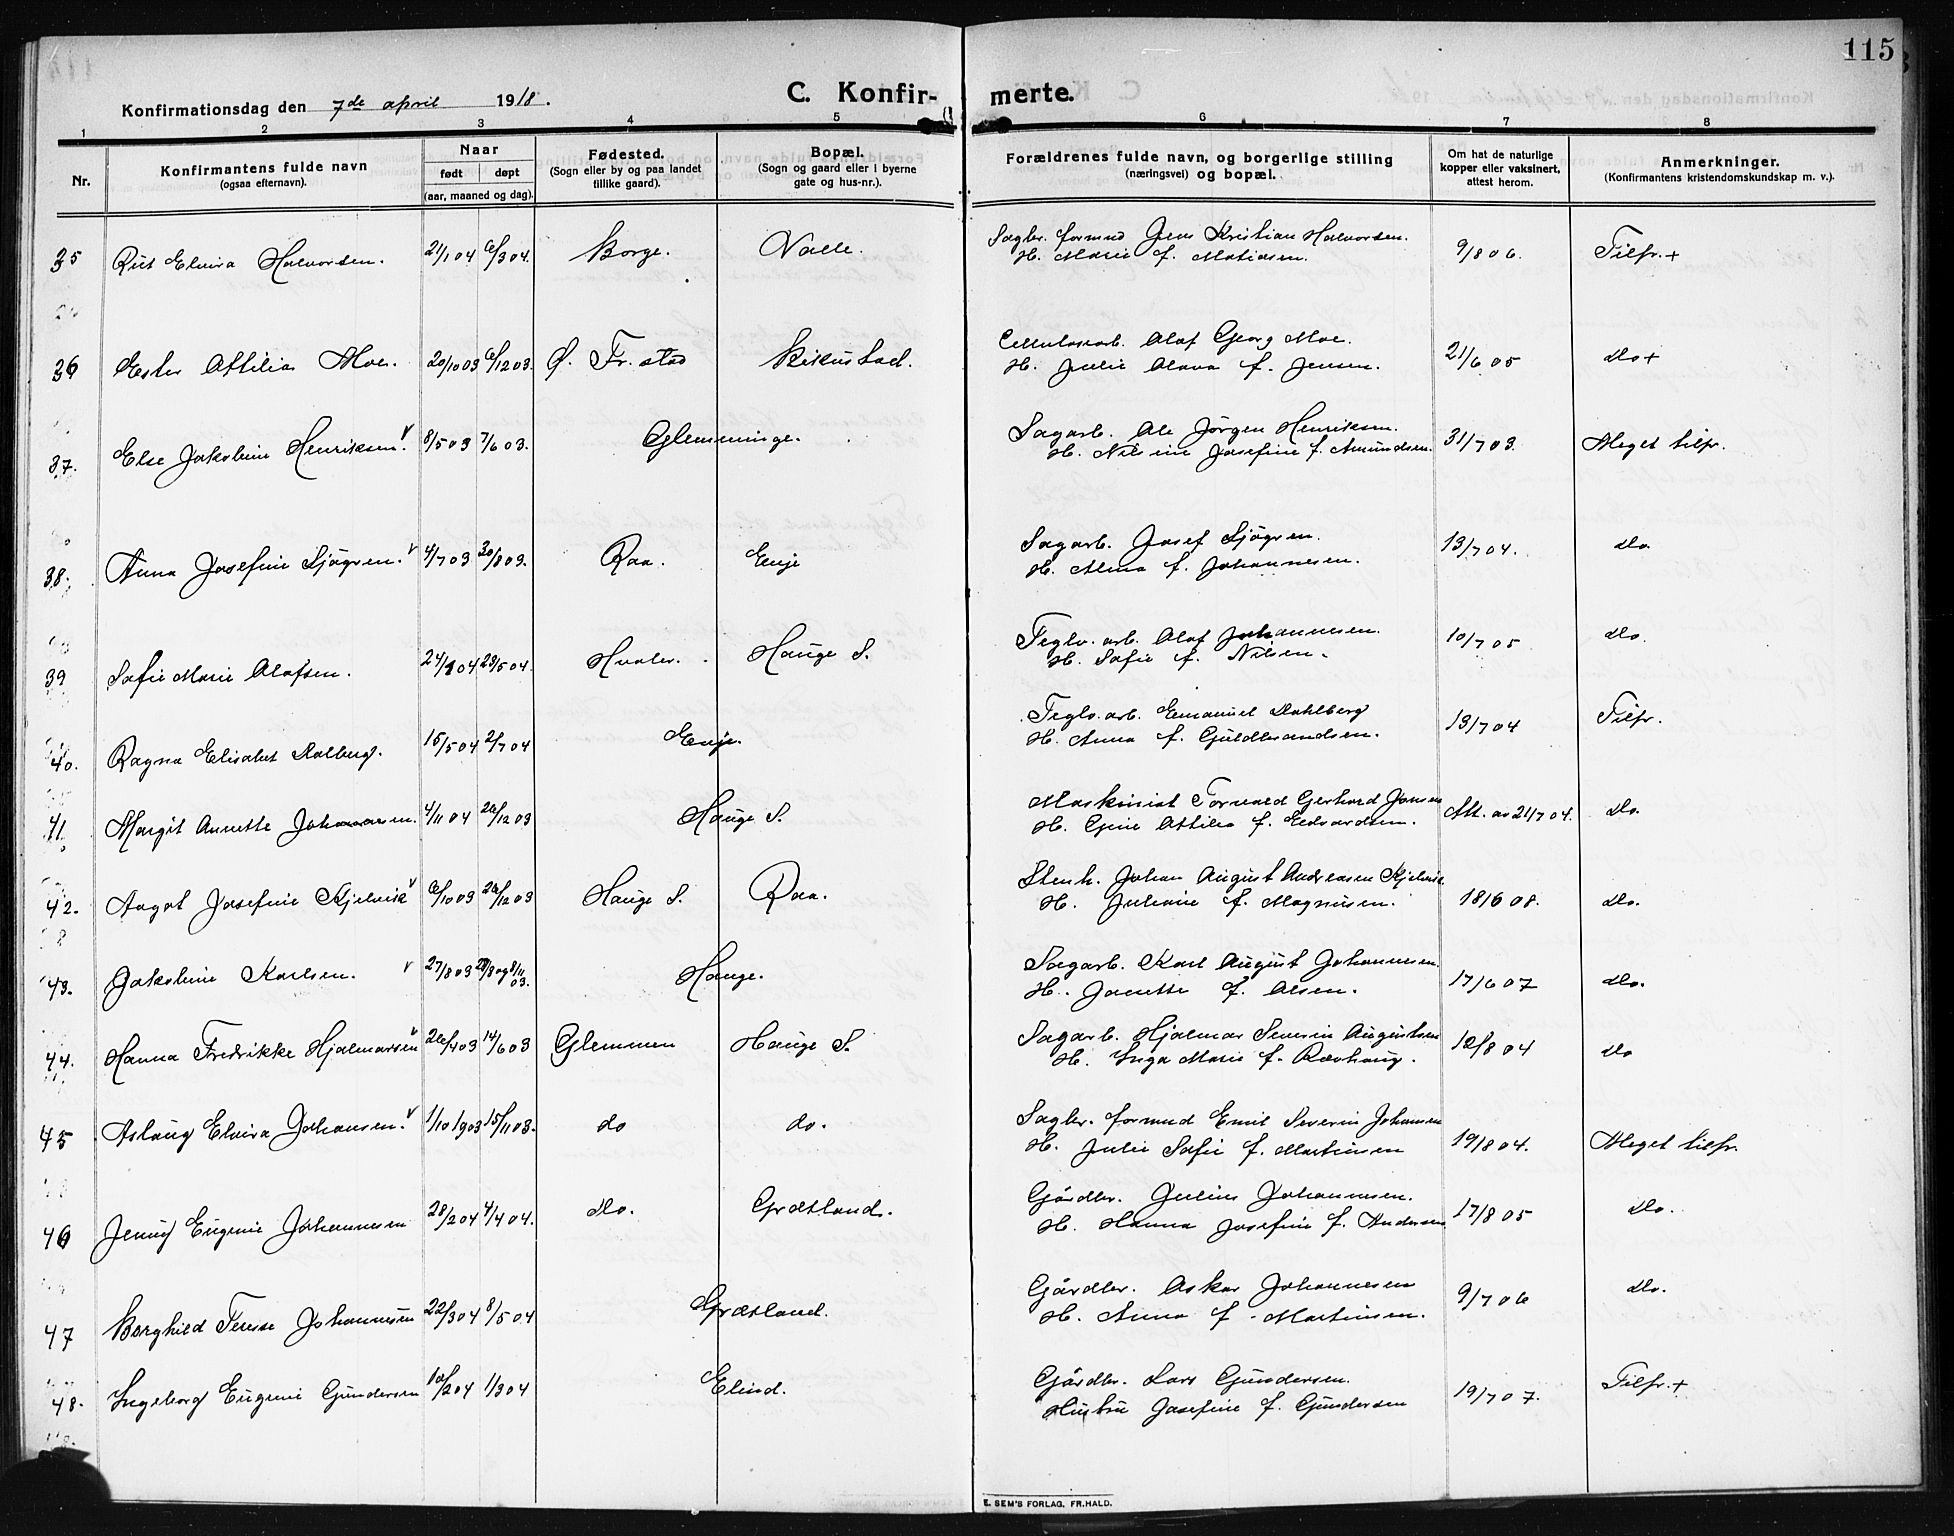 115
Konfirmationsdag den 7de april 1918.
C. Konfir- merte.
1 2 3 4 5 6 7 8
Nr.
Konfirmantens fulde navn
(ogsaa efternavn).
Naar
født døpt
(aar, maaned og dag).
Fødested.
(Sogn eller by og paa landet
tillike gaard).
Bopæl.
(Sogn og gaard eller i byerne
gate og hus-nr.).
Forældrenes fulde navn, og borgerlige stilling
(næringsvei) og bopæl.
Om hat de naturlige
kopper eller vaksinert,
attest herom.
Anmerkninger.
(Konfirmantens kristendomskundskap m. v.).
Sagbr. formnd Jens Kristian Halvorsen.
35 Rut Elvira Halvorsen. 21/1 04 6/3 04. Borge. Nalle. H. Marie f. Matiasen. 9/8 06. Tilfr. +
Cellulosearb. Olaf Georg Moe.
36 Ester Ottilia Moe. 20/10 03 6/12 03. Ø. Fr. stad Bikustad. H. Julie Olava f. Jensen. 21/6 05 do +
Sagarb. Ole Jørgen Henriksen.
37. Else Jakobine Henriksen. v 8/5 03 7/6 03. Glemminge. H. Nilsine Josefine f. Amundsen. 31/7 03. Meget tilfr.
Sagarb. Josef Sjögren.
38. Anna Josefine Sjögren. v 4/7 03 30/8 03. Raa. Enje H. Alma f. Johannesen. 13/7 04. do.
Teglv. arb. Olaf Johannesen.
39 Sofie Marie Olafsen. 24/3 04 23/5 04. Hvaler. Hauge S. H. Sofie f. Nilsen. 10/7 05 do.
Teglv. arb. Emanuel Dahlberg
40. Ragna Elisabet Dalberg. 15/5 04 2/7 04 Enje. H. Anna f. Guldbrandsen. 13/7 04 Tilfr.
Maskinist Torvald Gerhard Jansen
41. Margit Annette Johansen. 4/11 04 26/12 03 Hauge S. H. Gine Attilia f. Edvardsen. Att. av 21/7 04. do.
Stenh. Johan August Andreasen Kjelvik.
42. Aagot Josefine Kjelvik v 6/10 03 26/12 03 Hauge S. Raa. H. Juliane f. Magnusen. 18/6 08. do.
Sagarb. Karl August Johannesen.
43. Jakobine Karlsen. v 27/8 03 28/8 og 8/11 03. Hauge. H. Janette f. Olsen. 17/6 07 do.
Sagarb. Hjalmar Severin Augustsen
44. Hanna Fredrikke Hjalmarsen v 26/4 03 14/6 03 Glemmen Hauge S. H. Inga Marie f. Rævhaug. 12/8 04 do
Sagbr. formnd Emil Severin Johansen
45 Aslaug Elvira Johansen. v 1/10 1903 15/11 03. do do. H. Julie Sofie f. Martinsen 19/8 04. Meget tilfr.
Gårdbr. Julius Johannesen.
46 Jenny Eugenie Johannesen 28/2 04 4/4 04. do. Græsland. H. Hanna Josefine f. Andersen 17/8 05 do.
Gårdbr. Oskar Johannesen
47 Borghild Terese Johannesen 22/3 04 8/5 04 Græsland. H. Anna f. Martinsen. 9/7 06 do.
Gårdbr. Lars Gundersen.
48. Ingeborg Eugenie Gundersen 10/2 04 1/3 04 Elind. Hustru Josefine f. Gundersen 19/7 07. Tilfr. +
E. SEM'S FORLAG, FR.HALD.